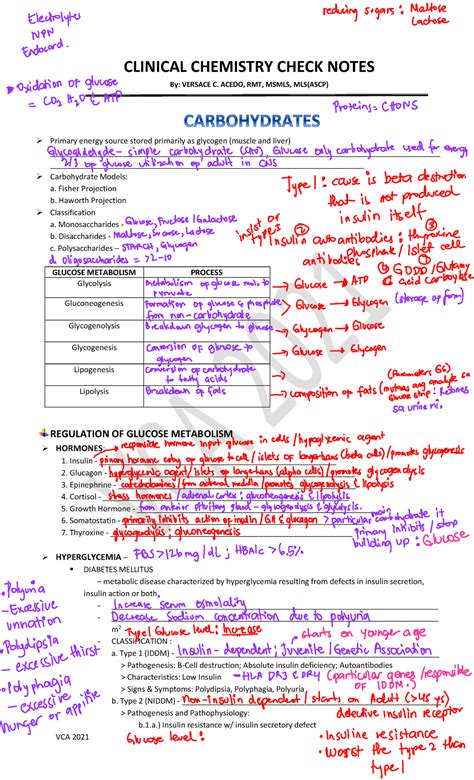 Electrolytes
NPN
Endocard.
reducing sugars : Maltose
Lactose
CLINICAL CHEMISTRY CHECK NOTES
By: VERSACE C. ACEDO, RMT, MSMLS, MLS(ASCP)
Oxidation of glucose
= CO2 H2O & ATP
CARBOHYDRATES
Proteins = CHONS
➢ Primary energy source stored primarily as glycogen (muscle and liver)
Glycoaldehyde - simple carbohydrate (CHO) Glucose only carbohydrate used for energy
2/3 of glucose utilization of adult in CNS
➢ Carbohydrate Models:
a. Fisher Projection
b. Haworth Projection
Type 1 : cause is beta destruction
that is not produced
insulin itself
➢ Classification
a. Monosaccharides - Glucose, Fructose / Galactose
b. Disaccharides - Maltose, Sucrose, Lactose
c. Polysaccharides - STARCH, Glycogen
d. Oligosaccharides = >2-10
Insulin autoantibodies : thyroxine
phosphate / Islet cell
antibodies
GLUCOSE METABOLISM PROCESS
Glycolysis Metabolism of glucose mole. to pyruvate → Glucose → ATP
Gluconeogenesis Formation of glucose 6 phosphate from non-carbohydrate → Glucose → Glycogen (storage form)
Glycogenolysis Breakdown glycogen to glucose → Glycogen → Glucose
Glycogenesis Conversion of glucose to glycogen → Glucose → Glycogen
Lipogenesis Conversion of carbohydrate to fatty acids
Lipolysis Breakdown of fats → composition of fats
VCA 2021
REGULATION OF GLUCOSE METABOLISM
➢ HORMONES: responsible hormone input glucose in cells / hypoglycemic agent
1. Insulin - primary hormone entry of glucose to cell / islets of langerhans (beta cells) / promotes glycogenesis
2. Glucagon - hyperglycemic agent / islets of langerhans (alpha cells) / promotes glycogenolysis
3. Epinephrine - catecholamines / from adrenal medulla / promotes glycogenolysis & lipolysis
4. Cortisol - stress hormones / adrenal cortex ; gluconeogenesis & lipolysis
5. Growth Hormone - from anterior pituitary gland - glycogenolysis & glycolysis.
6. Somatostatin - primarily inhibits action of insulin / GH & glucagon > particular carbohydrate it
primary inhibits / stop
building up : Glucose
7. Thyroxine - glycogenolysis ; gluconeogenesis
➢ HYPERGLYCEMIA – FBS > 126 mg/dL ; HBA1c > 6.5%
▪ DIABETES MELLITUS
– metabolic disease characterized by hyperglycemia resulting from defects in insulin secretion,
insulin action or both.
- Increase serum osmolality
- Decrease sodium concentration due to polyuria
Type 1 Glucose level : Increase
• Polyuria
- Excessive
urination
• Polydipsia
- excessive thirst
• Polyphagia
- excessive
hunger or appetite
- CLASSIFICATION :
starts on younger age
a. Type 1 (IDDM) - Insulin - dependent ; Juvenile / Genetic Association
> Pathogenesis: B-Cell destruction; Absolute insulin deficiency; Autoantibodies
> Characteristics: Low Insulin - HLA DR3 & DR4 (particular genes responsible
of IDDM.)
> Signs & Symptoms: Polydipsia, Polyphagia, Polyuria
b. Type 2 (NIDDM) - Non-insulin dependent / starts on Adult (>45 ys)
> Pathogenesis and Pathophysiology: defective insulin receptor
b.1.a.) Insulin resistance w/ insulin secretory defect
Glucose level :
• Insuline resistance
• Worst the type 2 than
type 1
VCA 2021